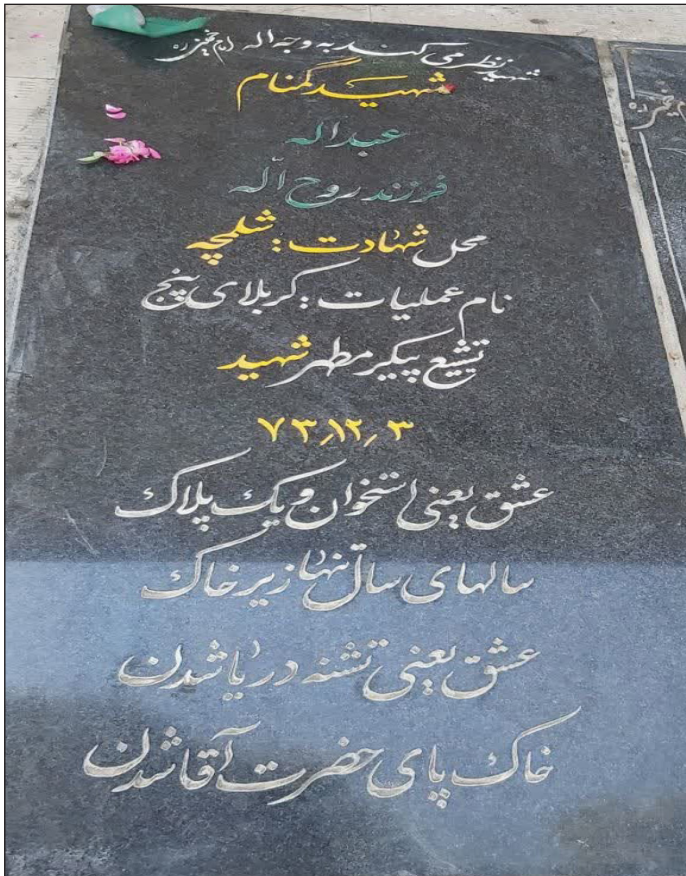 شهید نظر می کند به وجه اله امام خمینی ره
شهید گمنام
عبداله
فرزند روح اله
محل شهادت : شلمچه
نام عملیات : کربلای پنج
تشییع پیکر مطهر شهید
۷۳٫۱۲٫۳
عشق یعنی استخوان و یک پلاک
سالهای سال تنها زیر خاک
عشق یعنی تشنه دریا شدن
خاک پای حضرت آقا شدن